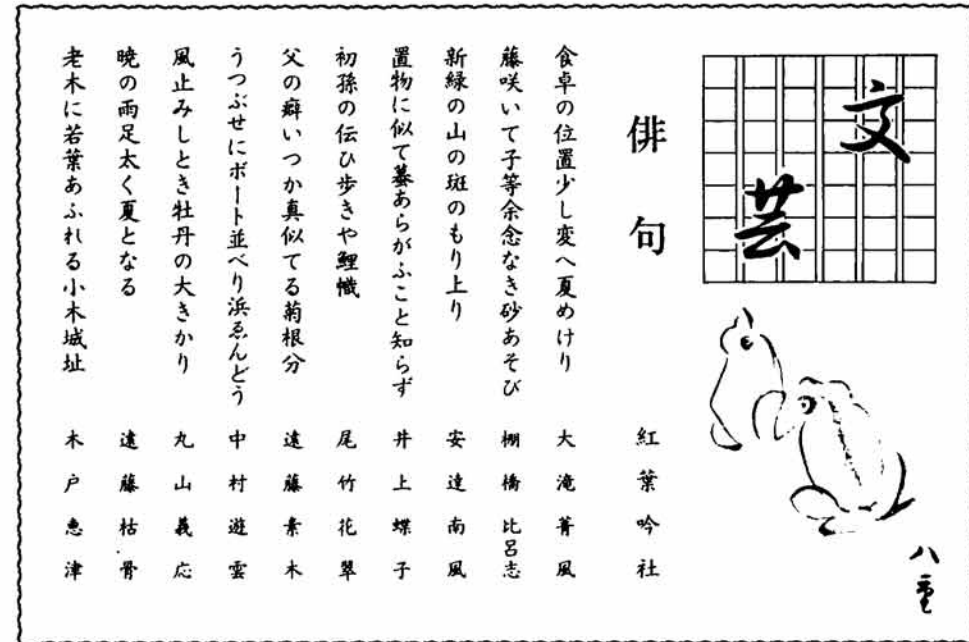 文芸
八重
俳句
紅葉吟社
食卓の位置少し変へ夏めけり 大滝菁風
藤咲いて子等余念なき砂あそび 棚橋比呂志
新緑の山の斑のもり上り 安達南風
置物に似て蟇あらがふこと知らず 井上蝶子
初孫の伝ひ歩きや鯉幟 尾竹花翠
父の癖いつか真似てる菊根分 遠藤素木
うつぶせにボート並べり浜ゑんどう 中村遊雲
風止みしとき牡丹の大きかり 丸山義応
暁の雨足太く夏となる 遠藤枯骨
老木に若葉あふれる小木城址 木戸恵津